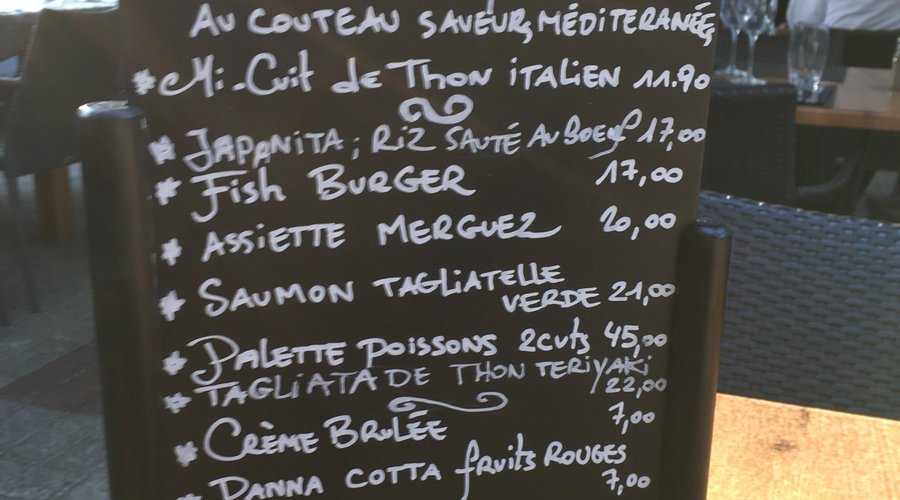 AU COUTEAU SAVEURS MÉDITERANÉE
* Mi-Cuit de Thon ITALIEN 11.90
* JAPANITA ; RIZ SAUTÉ AU BOEUF 17,00
* Fish BURGER 17,00
* ASSIETTE MERGUEZ 20,00
* SAUMON TAGLIATELLE
VERDE 21,00
* PALETTE POISSONS 2 cuts 45,00
* TAGLIATA DE THON TERIYAKI
22,00
* CRÈME BRULÉE 7,00
* PANNA COTTA fruits ROUGES
7,00